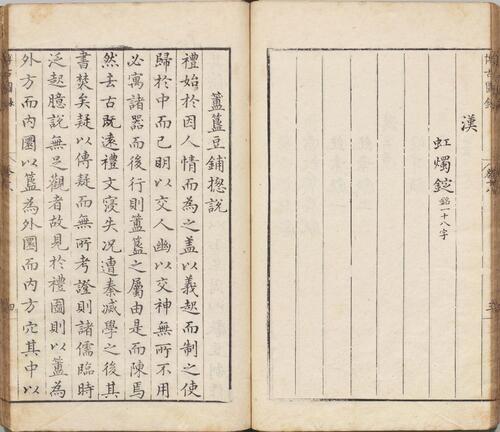 漢
虹燭錠銘一十八字
簠簋豆鋪揔說
禮始於因人情而為之盖以義起而制之使
歸於中而已明以交人幽以交神無所不用
必寓諸器而後行則簠簋之屬由是而陳焉
然去古既遠禮文寖失况遭秦滅學之後其
書焚矣疑以傳疑而無所考證則諸儒臨時
泛起臆說無足觀者故見於禮圖則以簋為
外方而內圜以簠為外圜而內方穴其中以